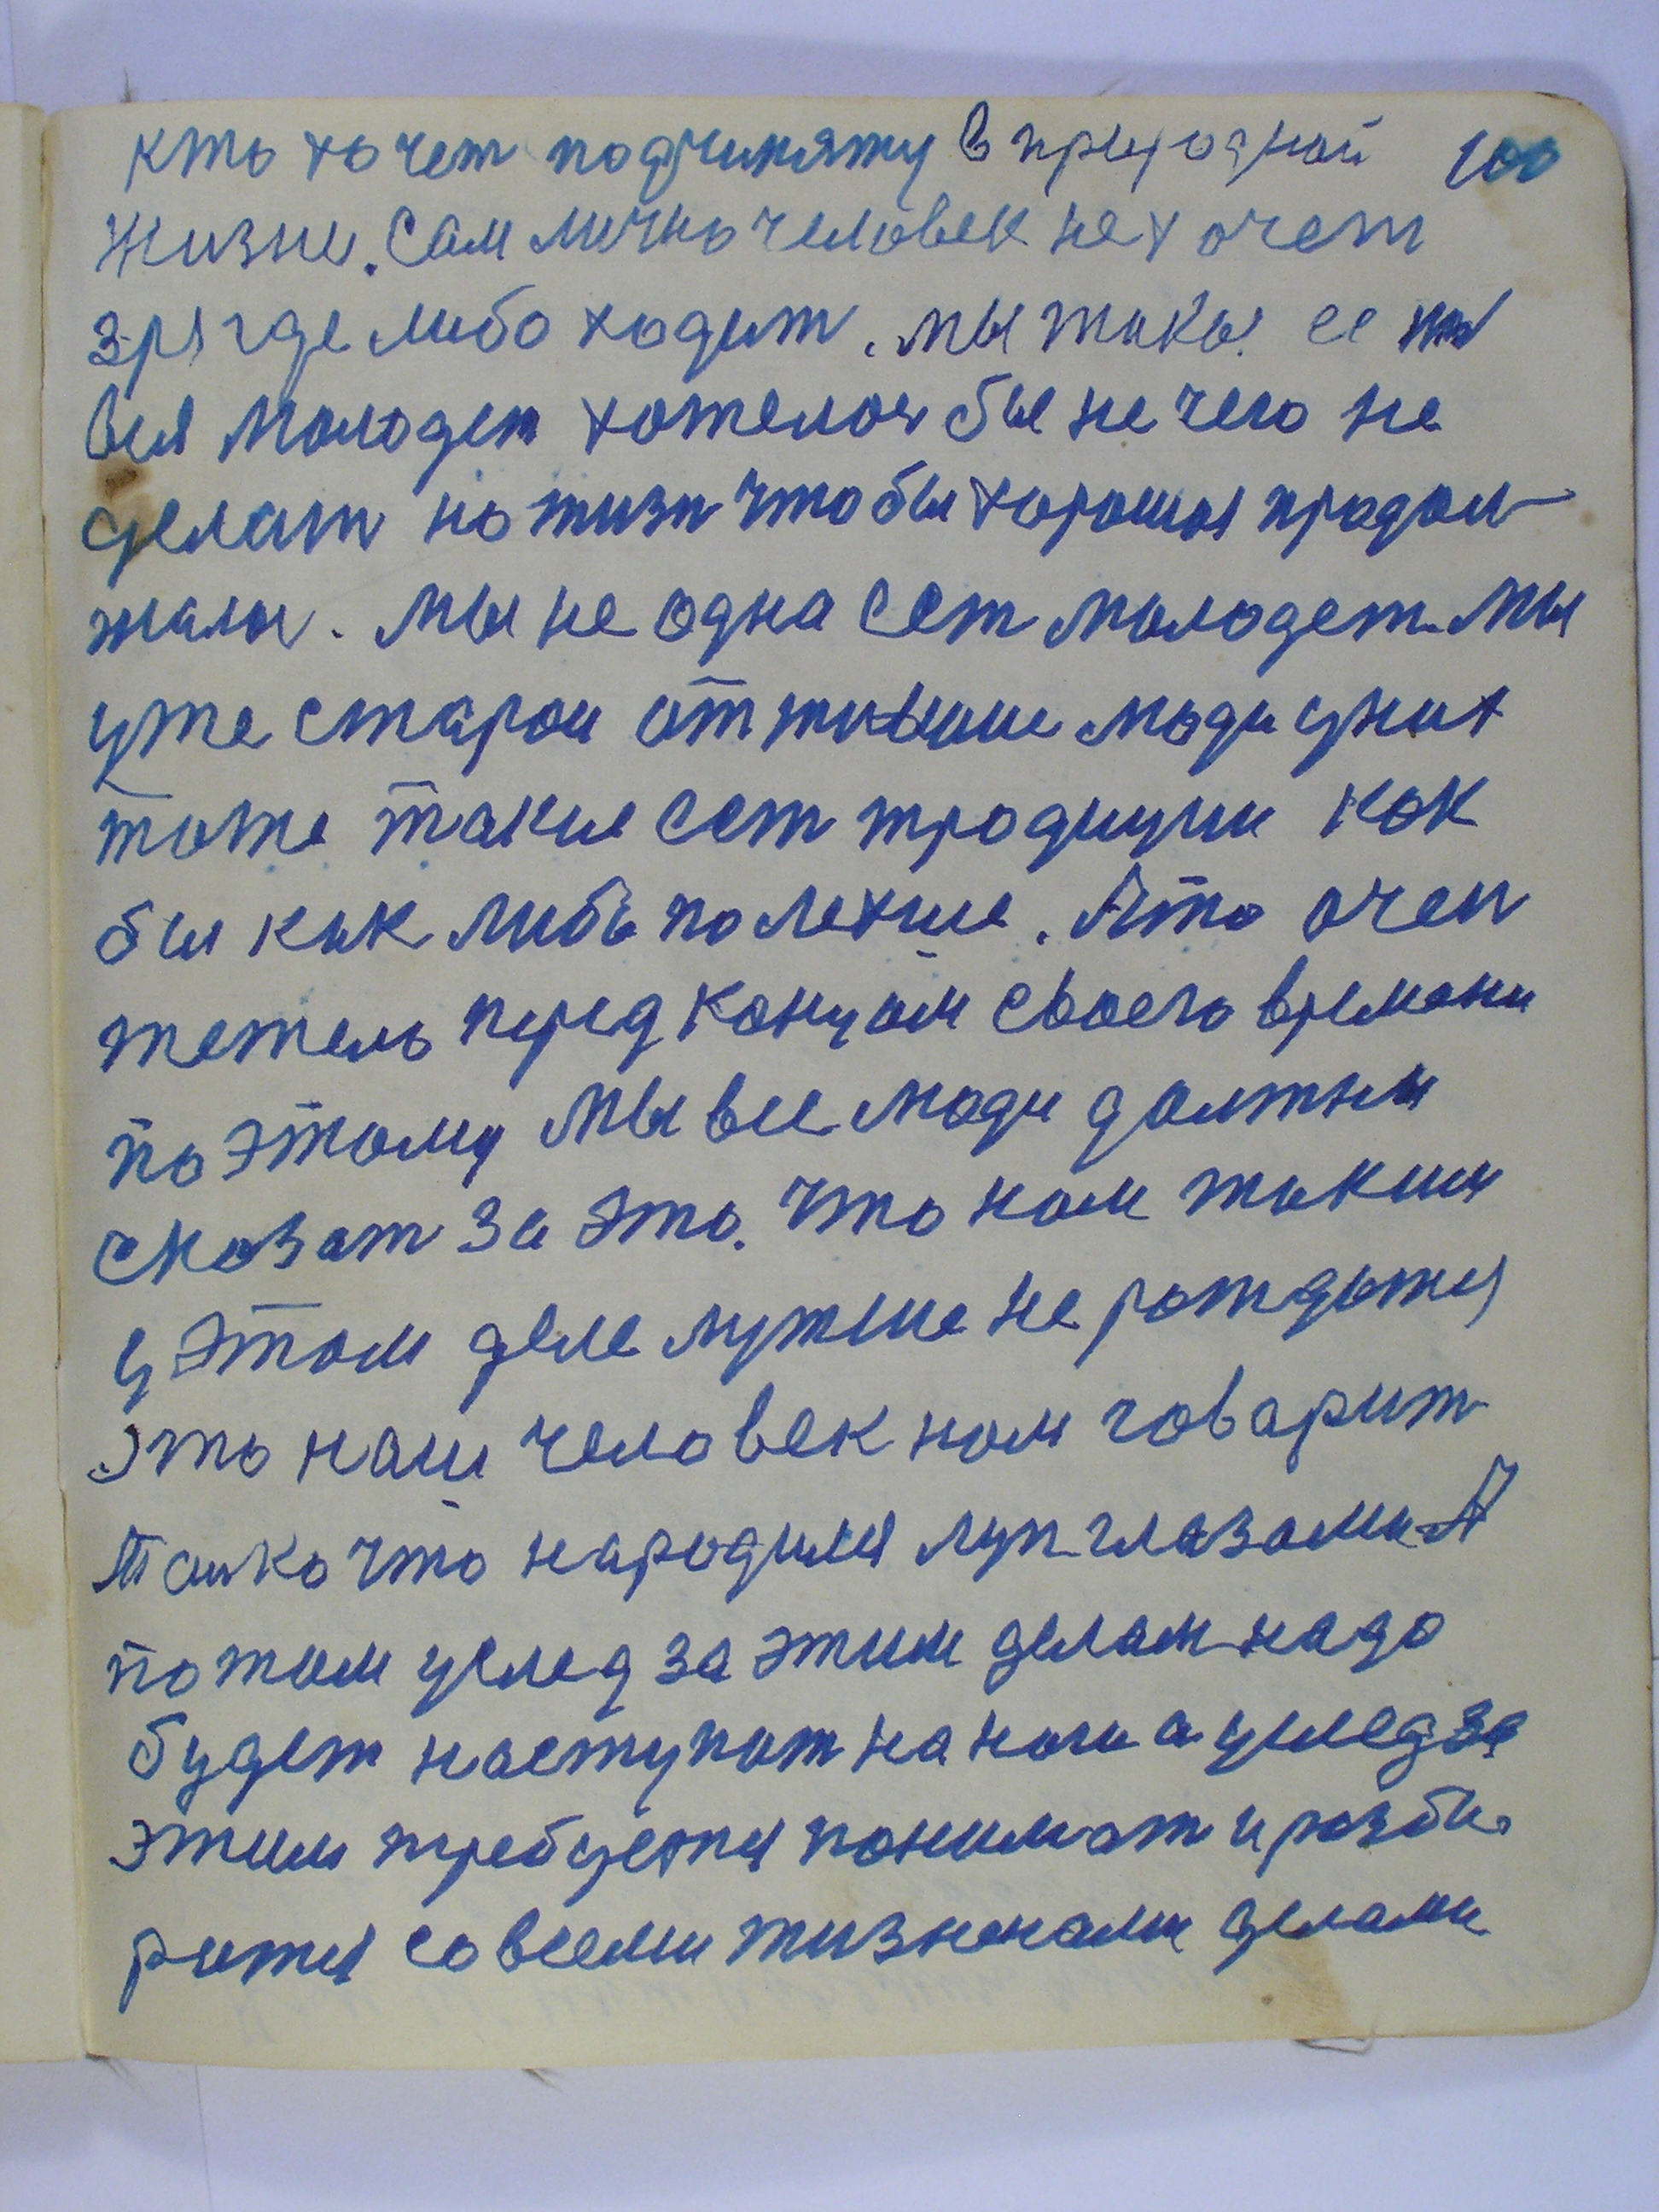 кто хочет подчиняту в природной 100
жизне. Сам лично человек не хочет
зря где либо ходит. мы таке се
вся молодет хотелос бы не чего не
делат но жизн что бы хорошая продол-
жалас. мы не одна сет молодет. мы
уже старои отжившие люди у них
тоже такие сет традиции как
бы как либо по летше. Ато очен
тежело перед концом своего времени
по этому мы все люди должны
сказат за это. что нам таким
у этом деле лутше не рождатся
это наш человек нам говарит
толко что народился луп глазами А
потом услед за этим делам надо
будет наступат на ноги а услед за
этим требуется понимат и разби-
ратся со всеми жизненами делами